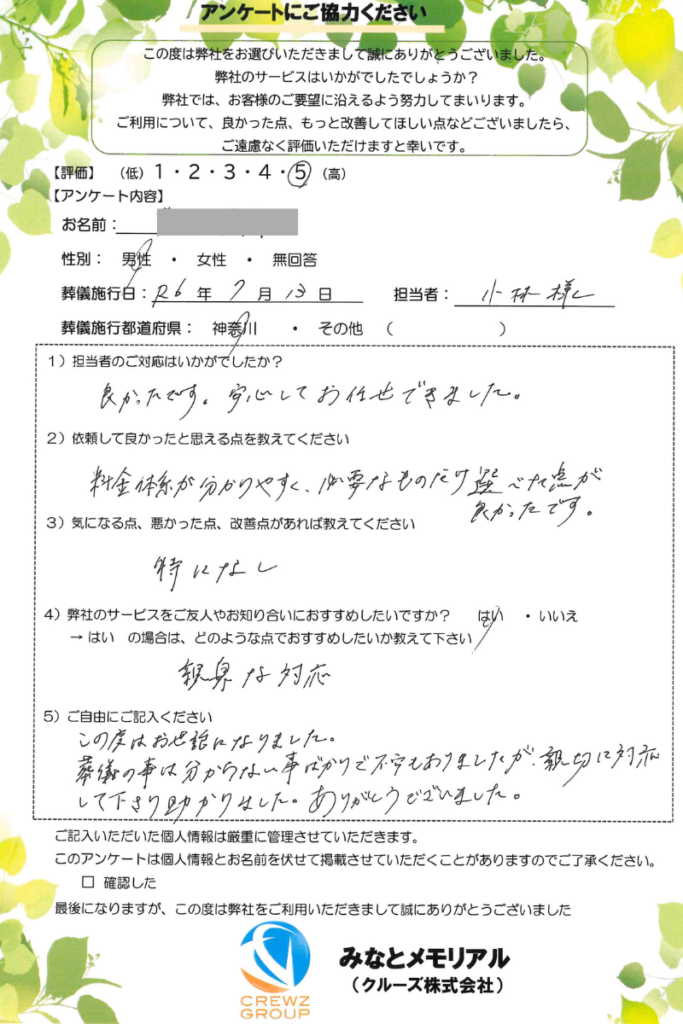 アンケートにご協力ください
この度は弊社をお選びいただきまして誠にありがとうございました。
弊社のサービスはいかがでしたでしょうか？
弊社では、お客様のご要望に沿えるよう努力してまいります。
ご利用について、良かった点、もっと改善してほしい点などございましたら、
ご遠慮なく評価いただけますと幸いです。
【評価】 （低）1・2・3・4・5（高）
【アンケート内容】
お名前：
性別： 男性 ・ 女性 ・ 無回答
葬儀施行日： R6 年 7 月 13 日 担当者： 小林様
葬儀施行都道府県： 神奈川 ・ その他 （ ）
1）担当者のご対応はいかがでしたか？
良かったです。安心してお任せできました。
2）依頼して良かったと思える点を教えてください
料金体系が分かりやすく、必要なものだけ選べた点が
良かったです。
3）気になる点、悪かった点、改善点があれば教えてください
特になし
4）弊社のサービスをご友人やお知り合いにおすすめしたいですか？ はい ・いいえ
→ はい の場合は、どのような点でおすすめしたいか教えて下さい
な対応
5）ご自由にご記入ください
この度はお世話になりました。
葬儀の事は分からない事ばかりで不安もありましたが、親切に対応
して下さり助かりました。ありがとうございました。
ご記入いただいた個人情報は厳重に管理させていただきます。
このアンケートは個人情報とお名前を伏せて掲載させていただくことがありますのでご了承ください。
□ 確認した
最後になりますが、この度は弊社をご利用いただきまして誠にありがとうございました
みなとメモリアル
（クルーズ株式会社）
CREWZ
GROUP